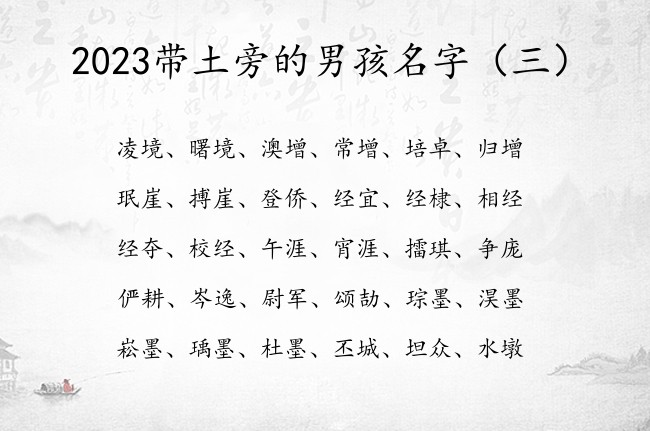 2023带土旁的男孩名字（三）
凌境、曙境、澳增、常增、培卓、归增
珉崖、搏崖、登侨、经宜、经棣、相经
经夺、校经、午涯、宵涯、擂琪、争庞
俨耕、岑逸、尉军、颂劼、琮墨、淏墨
崧墨、瑀墨、杜墨、丕城、坦众、水墩